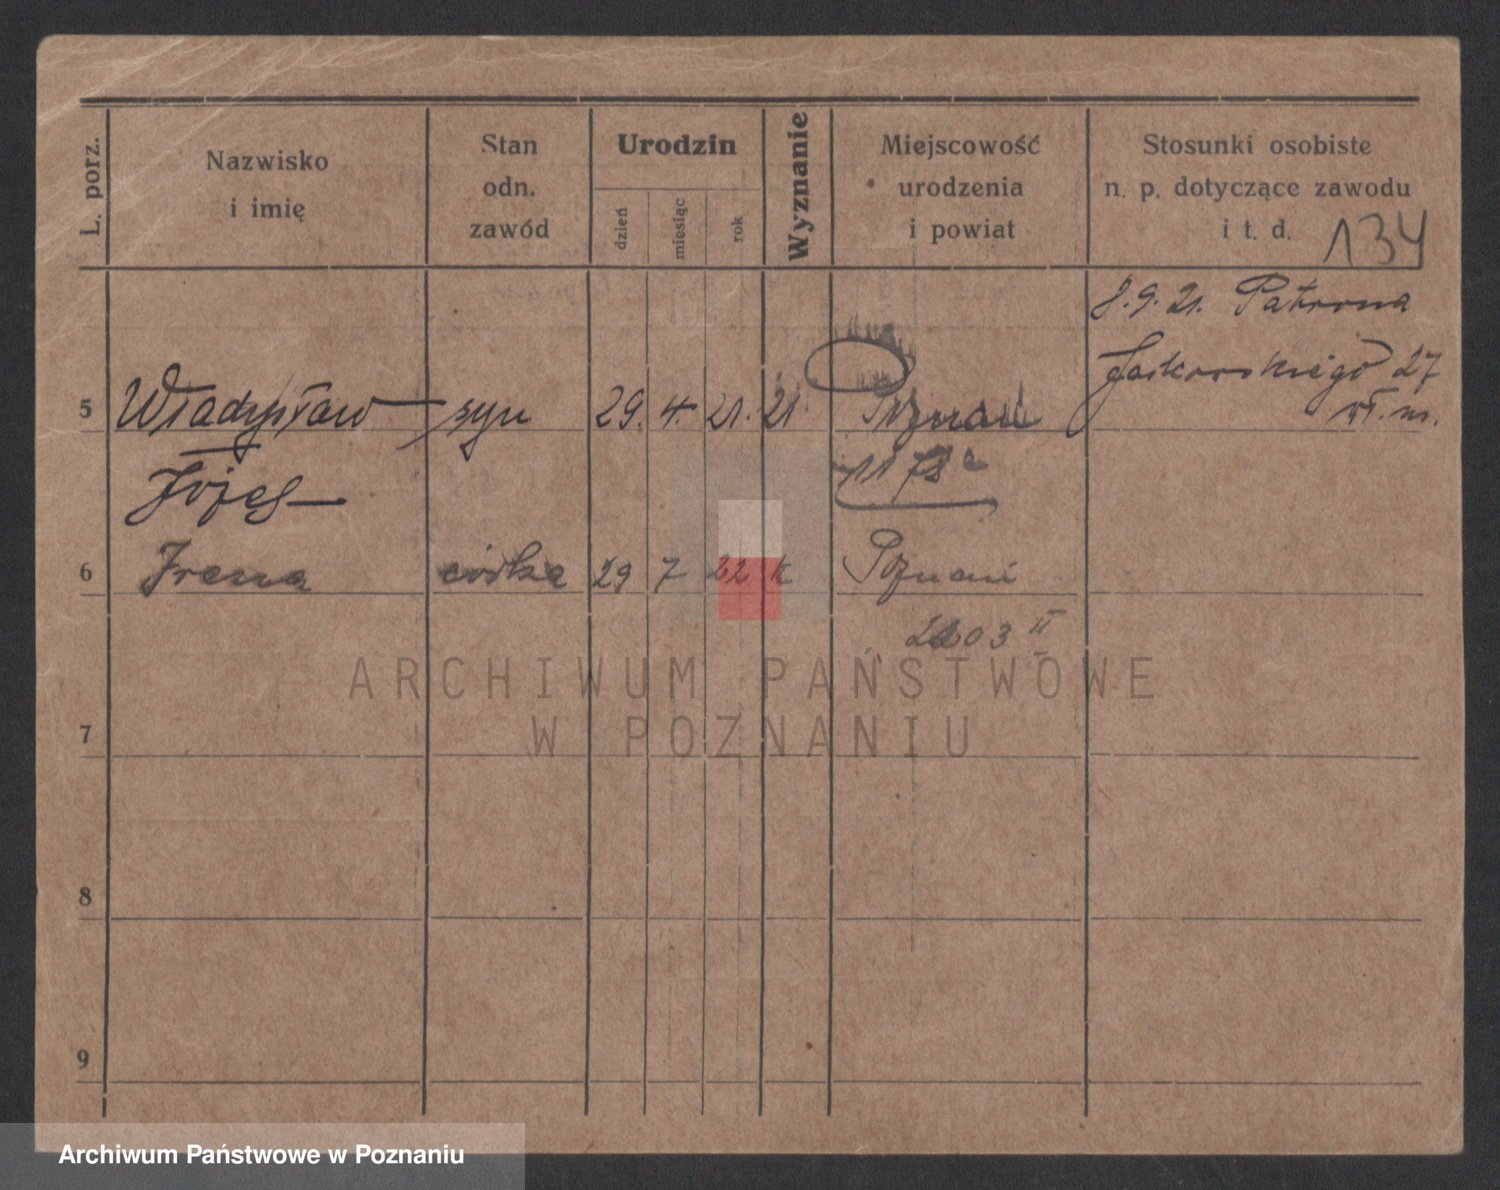 L. porz.
Nazwisko
i imię
Stan
odn.
zawód
Urodzin
dzień
miesiąc
rok
Wyznanie
Miejscowość
urodzenia
i powiat
Stosunki osobiste
n. p. dotyczące zawodu
i t. d.
134
8.9.21. Patrona
Jackowskiego 27
5 Władysław syn 29. 4. 21. 21. Poznań
6 Irena córka 29 7 22 k Poznań
ARCHIWUM PAŃSTWOWE
W POZNANIU
7
8
9
Archiwum Państwowe w Poznaniu